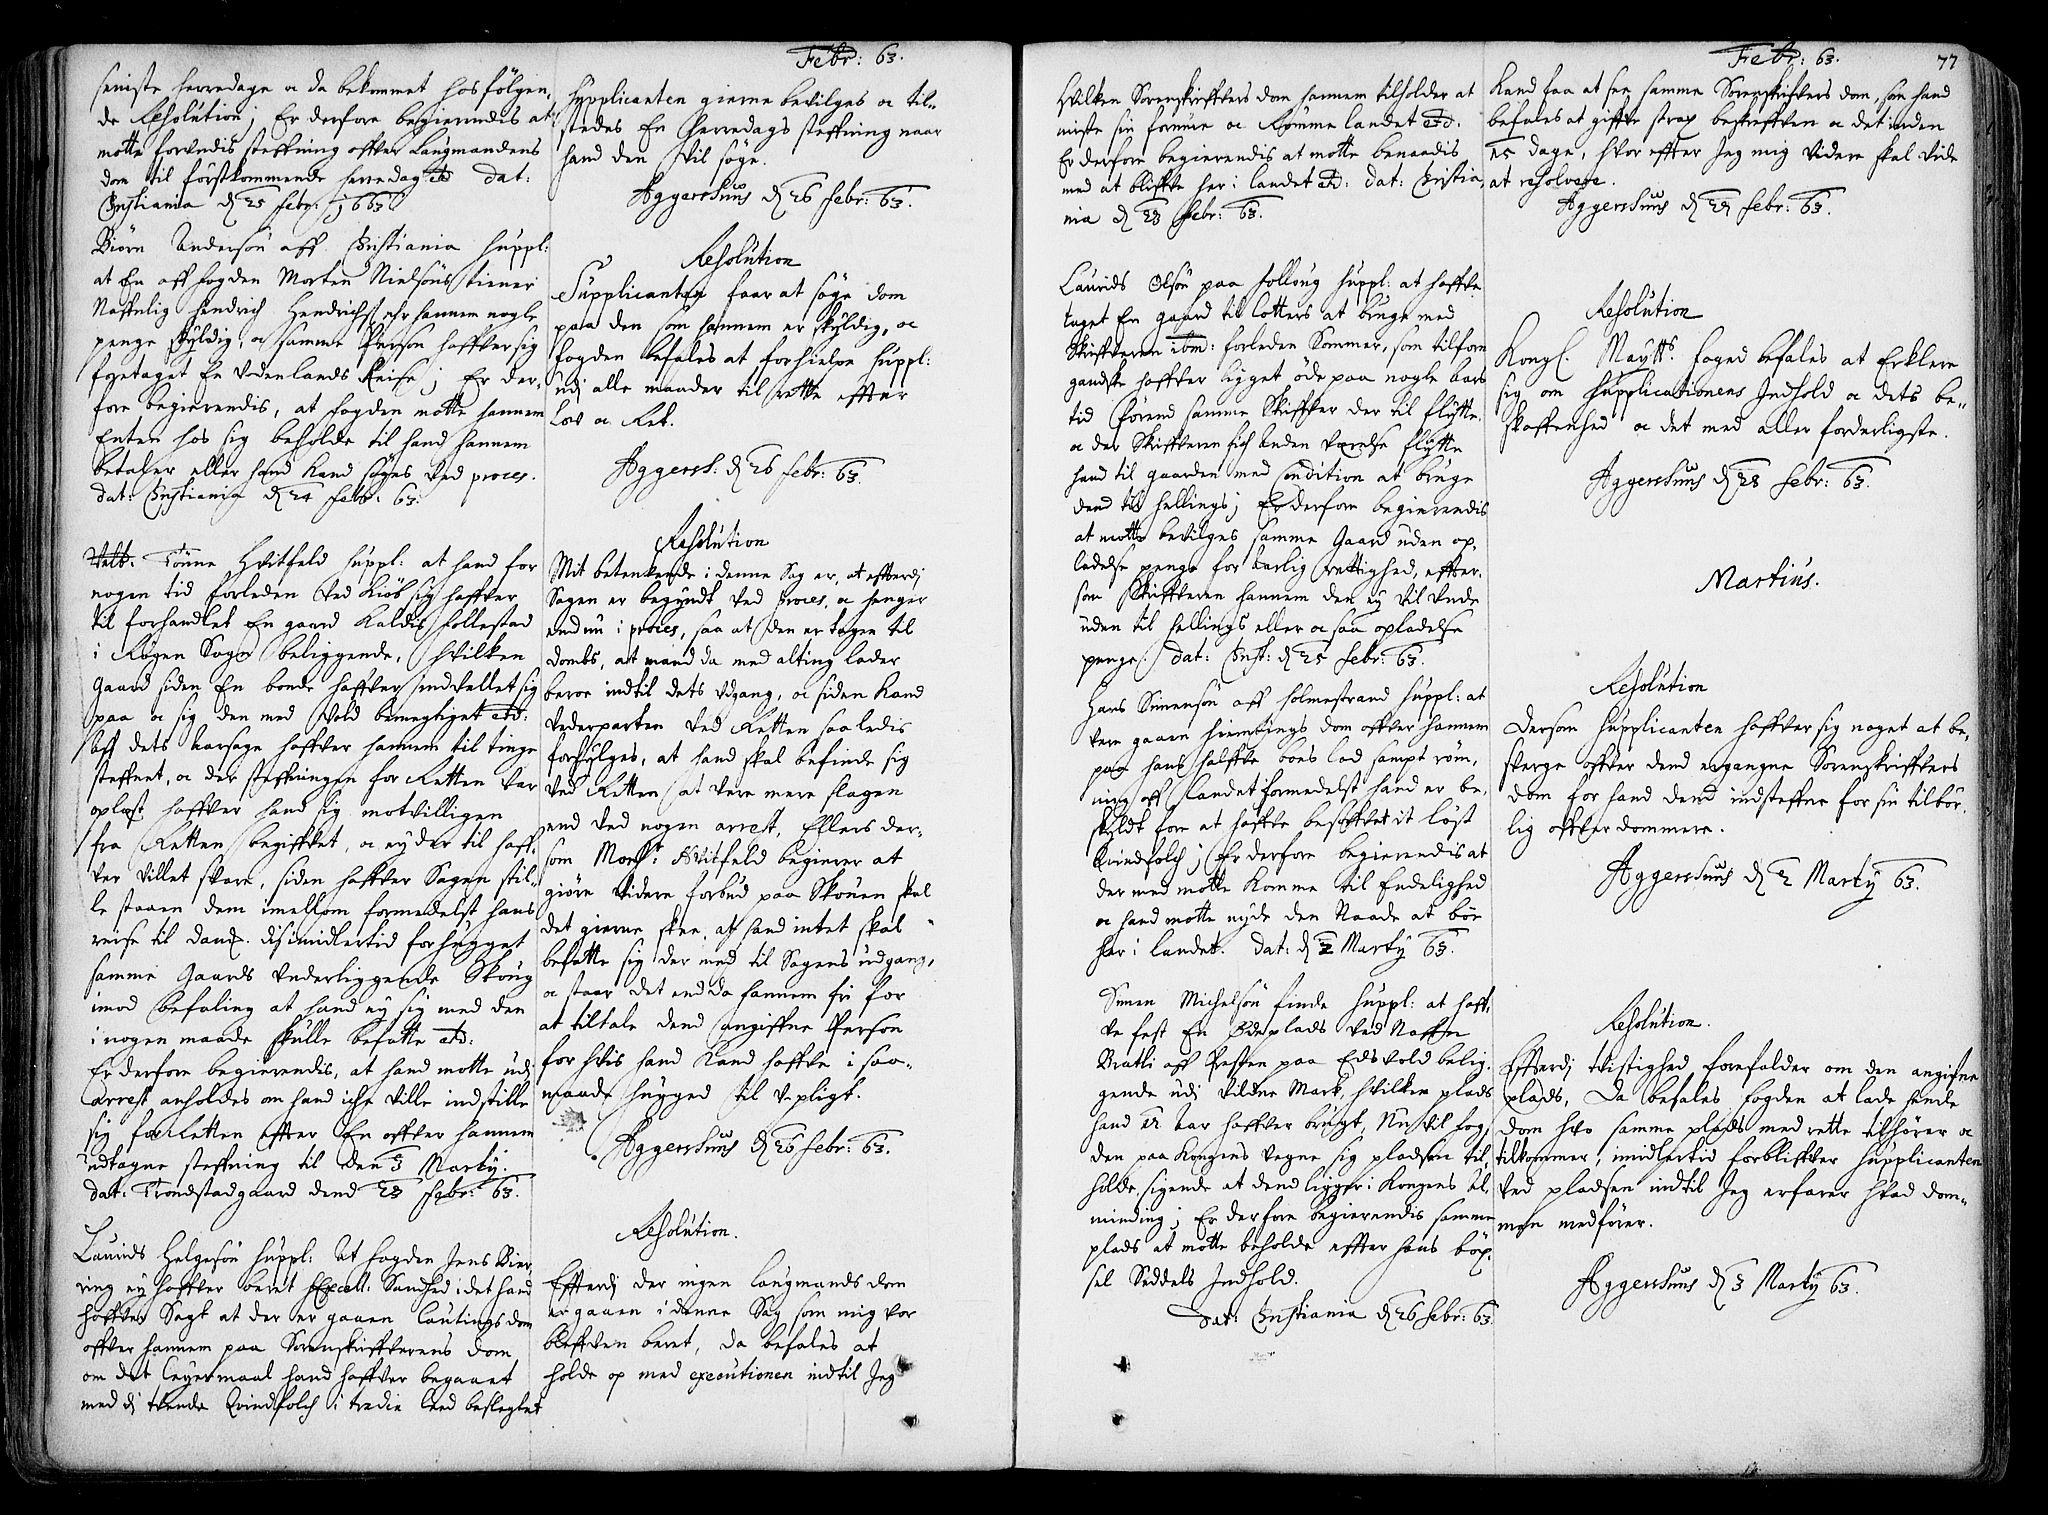 Febr: 63.
seniste herredage oc da bekommet hosfölgen,
de Resolution; Er derfore begierendis at
motte forundis steffning offuer Laugmandens
dom til förstkommende herredag etc dat:
Christiania d 25 febr: 1663.
Biörn Andersön aff Christiania suppl:
at En aff fogden Morten Nielsöns tiener
Naffnlig Hendrich Hendrichs: er hannem nogle
penge skyldig, oc samme Person haffuer sig
foretaget En Udenlands Reise; Er der,
fore begierendis, at fogden motte hannem
Enten hos sig beholde til hand hannem
betaler eller hand kand söges ved proces.
dat: Christiania d 24 febr: 63.
Velb. Tönne Hvitfeld suppl: at hand for
nogen tid forleden ved kiöb sig haffuer
til forhandlet En gaard kaldis follestad
i Rögen Sogn beliggende, hvilken
Gaard siden En bonde haffuer indvellet sig
paa oc sig den med vold bemegtiget etc:
Aff dets aarsage haffuer hannem til tinge
steffnet, oc der steffningen for Retten var
oplæst haffuer hand sig motvilligen
fra Retten begiffuet, oc ey der til haff,
uer villet svare, siden haffuer Sagen stil,
le staaen dem imellom formedelst hans
reise til Danm. Er imidlertid forhugget
samme Gaards underliggende Skoug
imod befaling at hand ey sig med den
i nogen maade skulle befatte etc:
Er derfore begierendis, at hand motte udj
arrest anholdes om hand icke ville indstille
sig for Retten effter En offuer hannem
udtagne steffning til den 3 Marty.
dat: Trondstadgaard dend 23 febr: 63.
Laurids Helgesön suppl: At fogden Jens Bier,
ring ey haffuer beret Excell: Sandhed i det hand
haffuer Sagt at der er gaaen Lautings dom
offuer hannem paa Sorenskriffuerens dom
om det Leyermaal hand haffuer begaaet
med dj tvende Qvindfolch i tredie Leed beslegtet
Supplicanten gierne bevilges oc til,
stedes En Herredags steffning naar
hand den vil söge.
Aggershuus d 26 febr: 63.
Resolution
Supplicanten faar at söge dom
paa den som hannem er skyldig, oc
fogden befales at forhielpe suppl:
udj alle maader til rette effter
Lov oc Ret.
Aggersh: d 26 febr: 63.
Resolution
Mit betenkende i denne Sag er, at effterdj
Sagen er begyndt ved Proces, oc henger
endnu i proces, saa at den er tagen til
dombs, at mand da med alting lader
beroe indtil dets udgang, oc siden kand
Vederparten ved Retten saaledis
forfulges, at hand skal befinde sig
ved Retten at vere mere slagen
end ved nogen arrest, Ellers der,
som Monsr: Hvitfeld begierer at
giöre videre forbud paa Skouen skal
det gierne skee, at hand intet skal
befatte sig der med til Sagens udgang,
oc staar det endda hannem fri for
at tiltale dend angiffne Person
for hvis hand kand haffue i saa,
maade hugged til upligt.
Aggershuus d 26 febr: 63.
Resolution.
Effterdj der ingen Laugmands dom
er gaaen i denne Sag som mig var
bleffuen beret, da befales at
holde op med executionen indtil Jeg
Febr: 63. 77
Hvilken Sorenskriffuers dom hannem tilholder at
miste sin formue oc Römme landet etc.
Er derfore begierendis at motte benaadis
med at bliffue her i landet etc: dat: Christia,
nia d 23 febr: 63.
Laurids Olsön paa folloug suppl: at haffue
taget En gaard til Lotters at bruge med
Skriffueren ibm: forleden Sommer, som tilforn
gandske haffuer ligget öde paa nogle aars
tid förend samme Skriffuer der til flytte
oc der Skriffueren fich anden verelse flytte
hand til gaarden med Condition at bruge
dend til hellings; Er derfore begierendis
at motte bevilges samme Gaard uden op,
ladelse penge for aarlig rettighed, effter,
som Skriffueren hannem den ey vil unde
uden til hellings eller oc saa opladelse
penge. dat: Christ: d 25 febr: 63.
Hans Simensön aff Holmestrand suppl: at
vere gaaen hiemtings dom offuer hannem
paa hans halffue boes lod sampt röm,
ming aff Landet formedelst hand er be,
skyldt for at haffue besoffuet it löst
Qvindfolch; Er derfore begierendis at
der med motte komme til Endelighed
oc hand motte nyde den Naade at boe
her i landet. dat: d 2 Marty 63.
Simen Michelsön finde suppl: at haff,
ue fest En Ödeplads ved Naffn
Bratli aff Presten paa Edsvold belig,
gende udj vildne Mark, hvilken plads
hand 12 aar haffuer brugt, Nu vil fog,
den paa Kongens vegne sig pladsen til,
holde, sigende at dend ligger i Kongens Al,
minding; Er derfore begierendis samme
plads at motte beholde effter hans böx,
sel Seddels Indhold.
Dat: Christiania d 26 febr: 63.
kand faa at see samme Sorenskriffuers dom, som hand
befales at giffue strax beskreffuen oc det inden
15 dage, hvor effter Jeg mig videre skal vide
at resolvere.
Aggershuus d 27 febr: 63.
Resolution
Kongl. Maytts. foged befales at Erklere
sig om supplicationens Indhold oc dets be,
skaffenhed oc det med aller forderligste.
Aggershuus d 28 febr: 63.
Martius.
Resolution
Dersom supplicanten haffuer sig noget at be,
sverge offuer dend ergangne Sorenskriffuers
dom for hand dend indsteffne for sin tilbör,
lig offuerdommere.
Aggershuus d 2 Marty 63.
Resolution.
Effterdj tvistighed forefalder om den angifne
plads, Da befales fogden at lade kiende
dom hvo samme plads med rette tilhörer oc
tilkommer, imidlertid forbliffuer supplicanten
ved pladsen indtil Jeg erfarer hvad dom,
men medförer.
Aggershuus d 3 Marty 63.